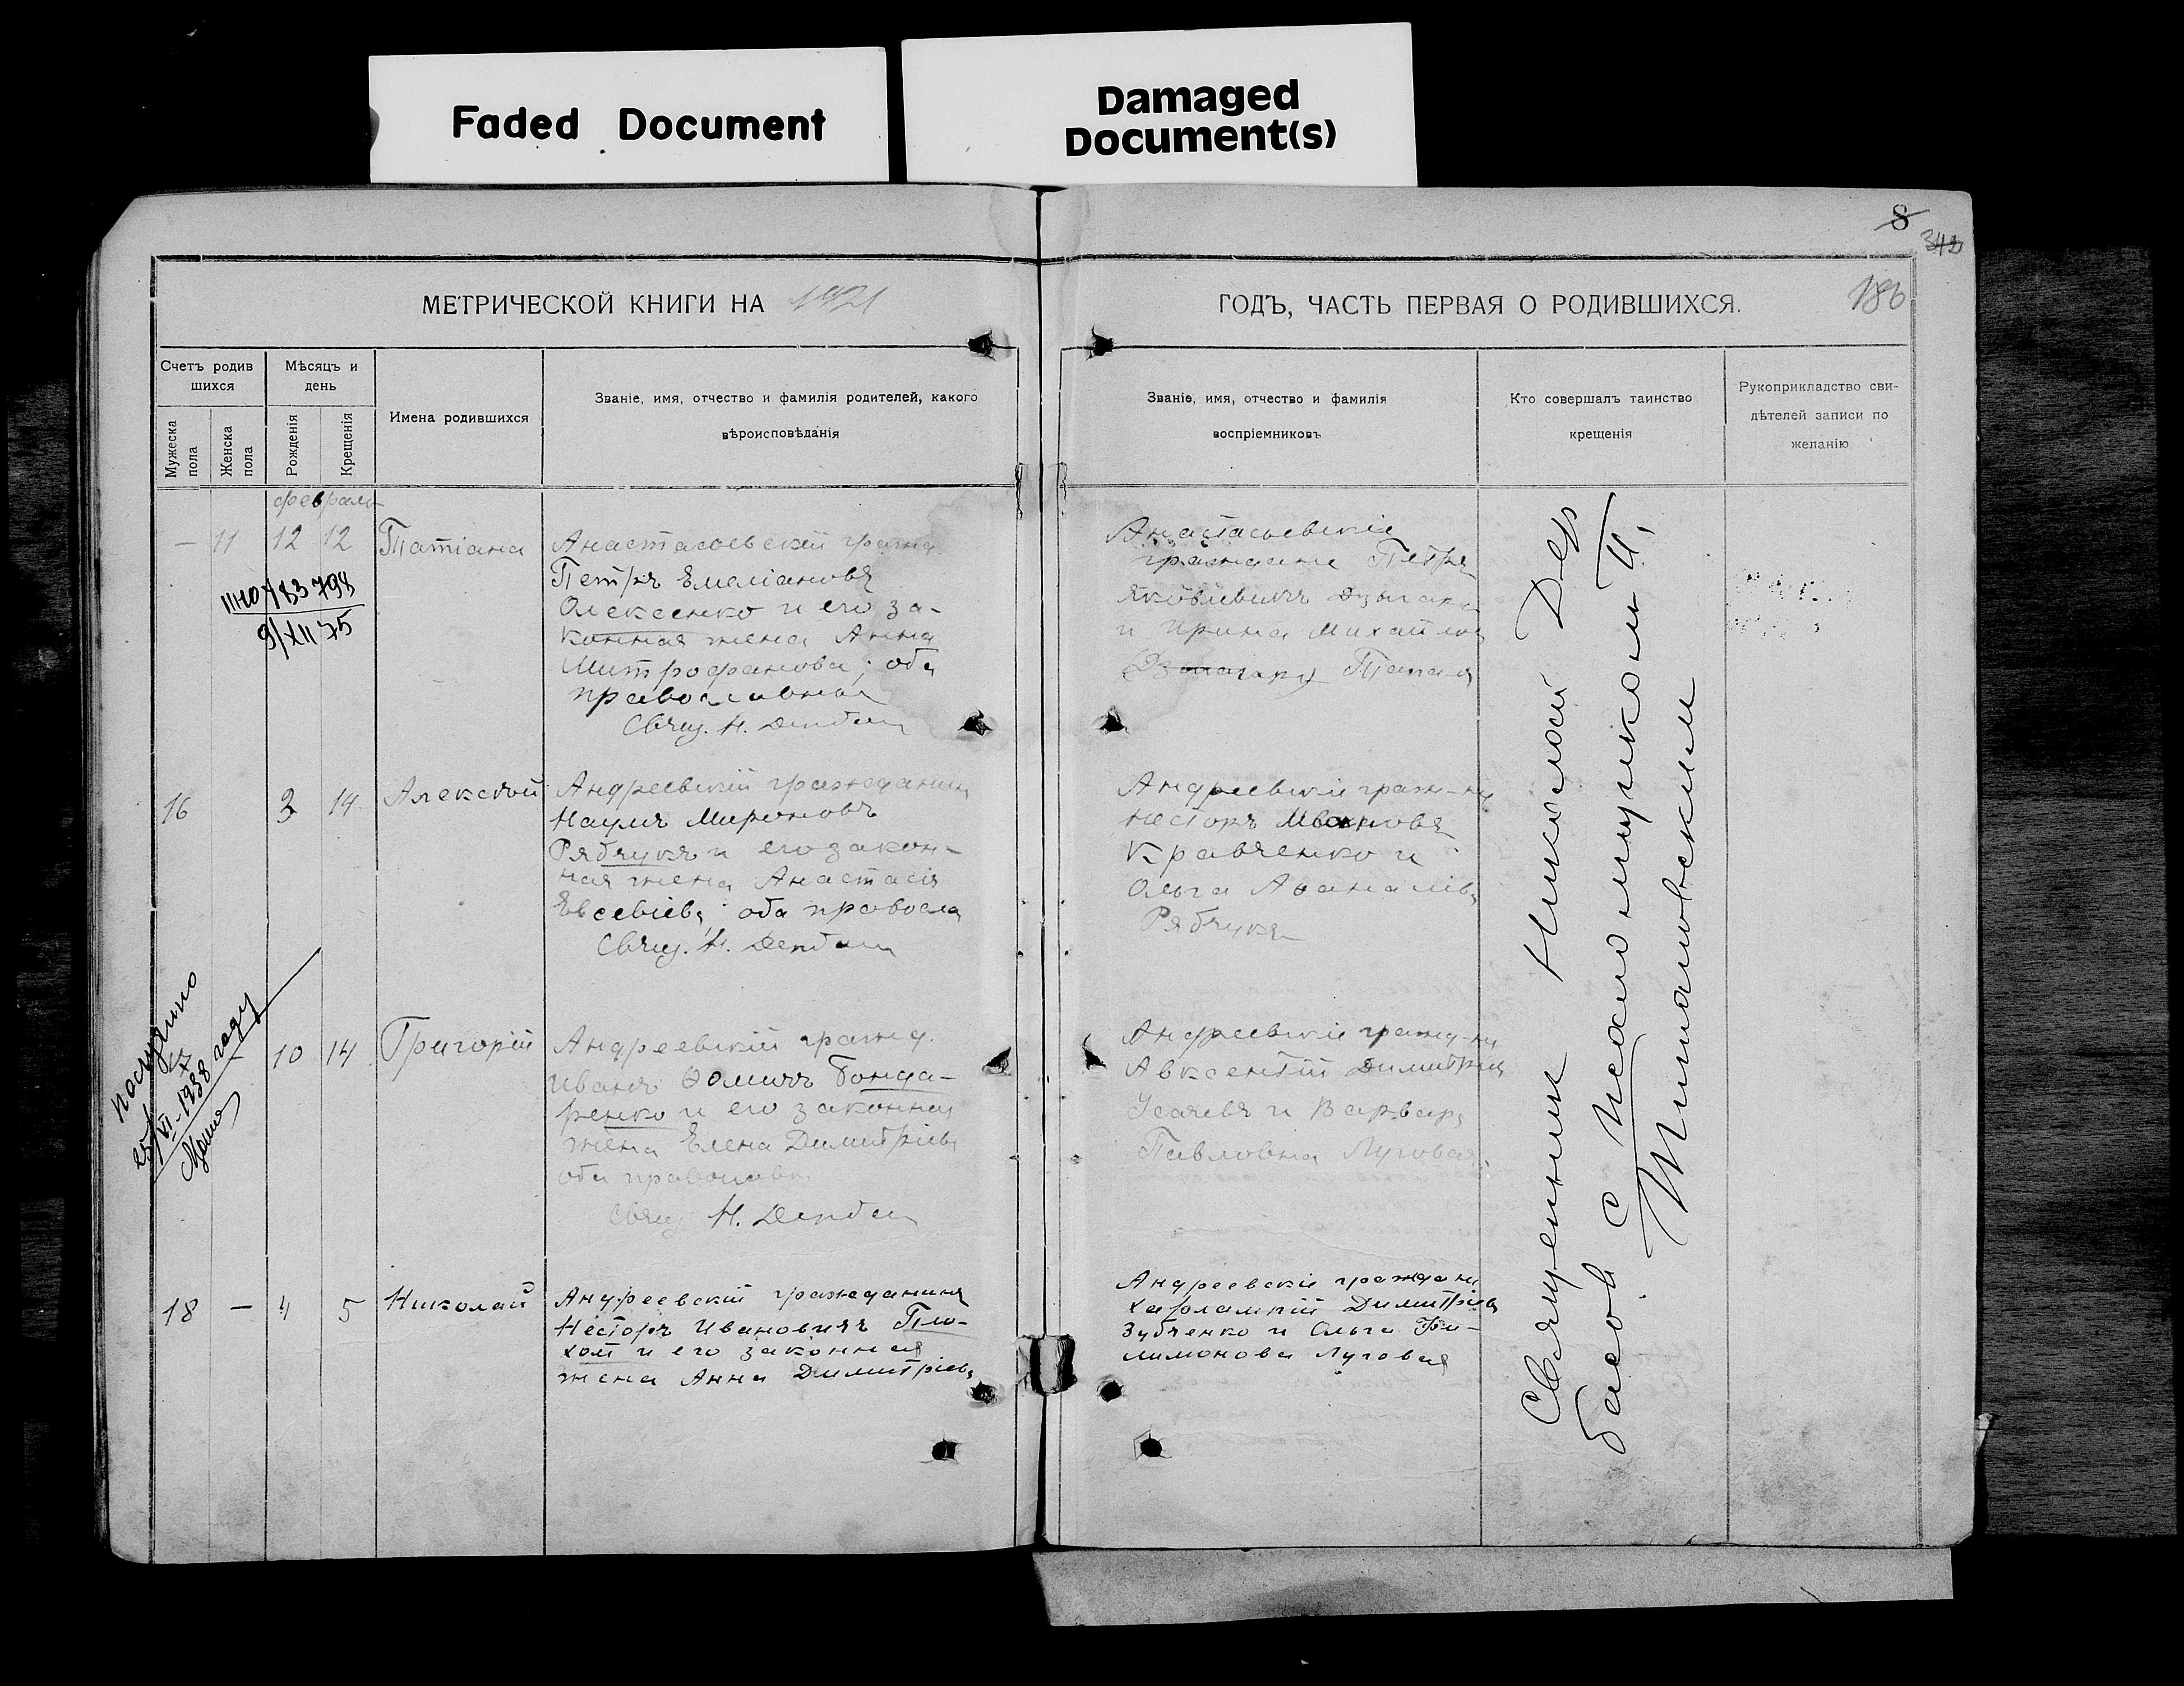 Faded Document
Damaged
Document(s)
8
342
186
МЕТРИЧЕСКОЙ КНИГИ НА 1921
ГОДЪ, ЧАСТЬ ПЕРВАЯ О РОДИВШИХСЯ.
Счетъ родив
шихся
Мужеска
пола
Женска
пола
Мѣсяцъ и
день
Рожденія
Крещенія
Имена родившихся
Званіе, имя, отчество и фамилія родителей, какого
вѣроисповѣданія
Званіе, имя, отчество и фамилія
воспріемниковъ
Кто совершалъ таинство
крещенія
Рукоприкладство сви-
дѣтелей записи по
желанію
февраль
— 11 12 12 Татіана
Анастасьевскій гражд.
Петръ Емеліановъ
Олексенко и его за-
конная жена Анна
Митрофанова; оба
православные
Свящ. Н.
Анастасьевскіе
граждане Петръ
Яковлевичъ
и Ирина Михайлов
9/XII 75
16 3 14 Алексѣй
Андреевскій гражданинъ
Наумъ Мироновъ
Рябчукъ и его закон-
ная жена Анастасія
Евсевіев; оба правосла
Свящ. Н.
Андреевскіе граж-не
Несторъ Ивановъ
Кравченко и
Ольга
Рябчукъ
10 14 Григорій
Андреевскій гражд.
Иванъ Ѳомичъ Бонда-
ренко и его законная
жена Елена Димитріев
оба православн
Свящ Н.
Андреевскіе гражд-не
Авксентій Димитріев
и Варвара
Павловна Луговая
VI-1938 году
18 — 4 5 Николай
Андреевскій гражданинъ
Несторъ Ивановичъ Пло-
хой и его законная
жена Анна Димитріев
Андреевскіе граждане
Харлампій Димитріев
Зубченко и Ольга Фи-
лимонова Луговая
Священник Николай Дер
басов с Псаломщиком И.